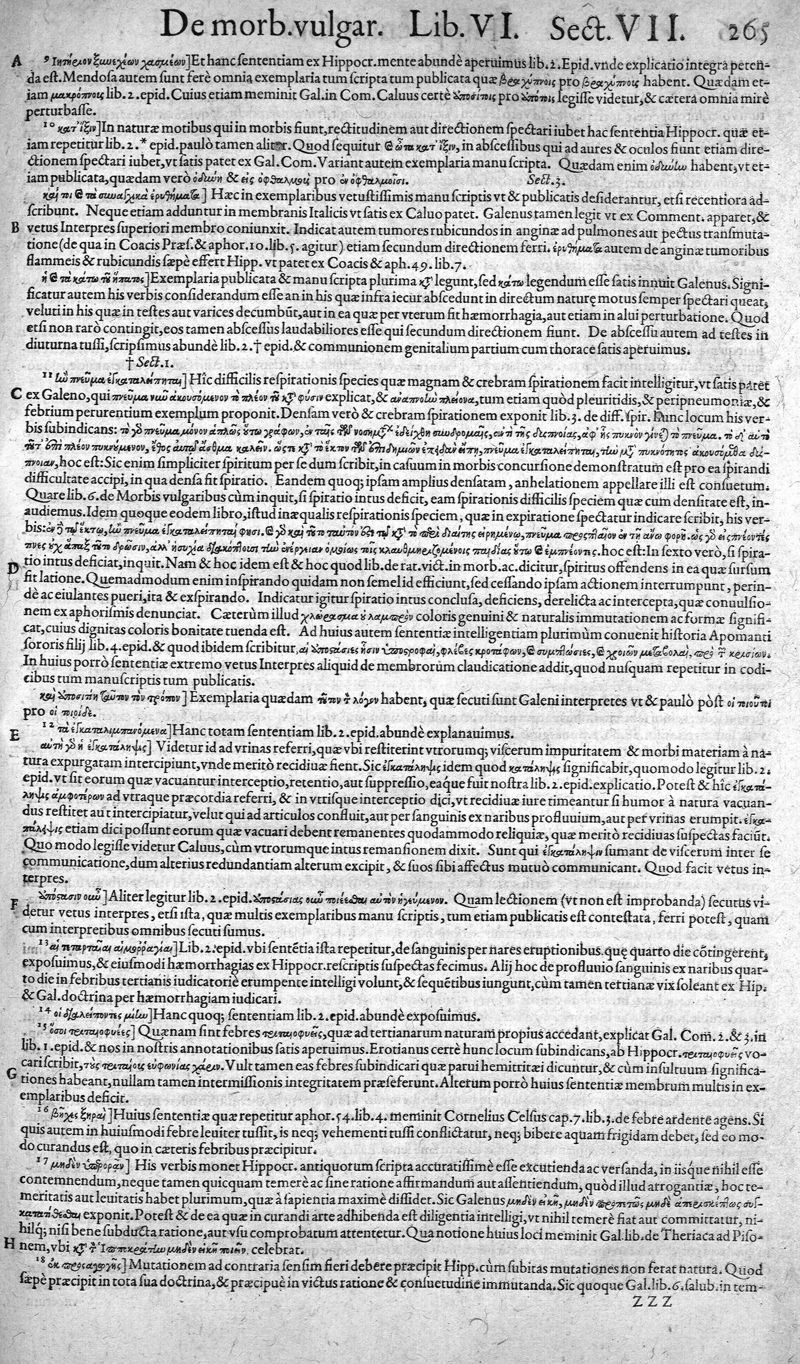 De morb. vulgar. Lib. VI. Sect. VII. 265
A ]Et hanc sententiam ex Hippocr. mente abundè aperuimus lib. 2. Epid. vnde explicatio integra peten-
da est. Mendosa autem sunt ferè omnia exemplaria tum scripta tum publicata quæ pro habent. Quædam et-
iam lib. 2. epid. Cuius etiam meminit Gal. in Com. Caluus certè pro legisse videtur, & cætera omnia mirè
perturbasse.
10 κατ' ἴξιν] In naturæ motibus qui in morbis fiunt, rectitudinem aut directionem spectari iubet hac sententia Hippocr. quæ et-
iam repetitur lib. 2. * epid. paulò tamen aliter. Quod sequitur in abscessibus qui ad aures & oculos fiunt etiam dire-
ctionem spectari iubet, vt satis patet ex Gal. Com. Variant autem exemplaria manu scripta. Quædam enim habent, vt et-
iam publicata, quædam verò & pro Sect. 3.
] Hæc in exemplaribus vetustissimis manu scriptis vt & publicatis desiderantur, etsi recentiora ad-
scribunt. Neque etiam adduntur in membranis Italicis vt satis ex Caluo patet. Galenus tamen legit vt ex Comment. apparet, &
B vetus Interpres superiori membro coniunxit. Indicat autem tumores rubicundos in anginæ ad pulmones aut pectus transmuta-
tione (de qua in Coacis Præs. & aphor. 10. lib. 5. agitur) etiam secundum directionem ferri. autem de anginæ tumoribus
flammeis & rubicundis sæpè effert Hipp. vt patet ex Coacis & aph. 49. lib. 7.
] Exemplaria publicata & manu scripta plurima legunt, sed κάτω legendum esse satis innuit Galenus. Signi-
ficatur autem his verbis considerandum esse an in his quæ infra iecur abscedunt in directum naturę motus semper spectari queat,
veluti in his quæ in testes aut varices decumbūt, aut in ea quæ per vterum fit hæmorrhagia, aut etiam in alui perturbatione. Quod
etsi non rarò contingit, eos tamen abscessus laudabiliores esse qui secundum directionem fiunt. De abscessu autem ad testes in
diuturna tussi, scripsimus abundè lib. 2. † epid. & communionem genitalium partium cum thorace satis aperuimus.
† Sect. 1.
11 ] Hîc difficilis respirationis species quæ magnam & crebram spirationem facit intelligitur, vt satis patet
C ex Galeno, qui explicat, & tum etiam quòd pleuritidis, & peripneumoniæ, &
febrium perurentium exemplum proponit. Densam verò & crebram spirationem exponit lib. 3. de diff. spir. Hanc locum his ver-
bis subindicans:
hoc est: Sic enim simpliciter spiritum per se dum scribit, in casuum in morbis concursione demonstratum est pro ea spirandi
difficultate accipi, in qua densa fit spiratio. Eandem quoq; ipsam amplius densatam, anhelationem appellare illi est consuetum.
Quare lib. 6. de Morbis vulgaribus cùm inquit, si spiratio intus deficit, eam spirationis difficilis speciem quæ cum densitate est, in-
audiemus. Idem quoque eodem libro, istud inæqualis respirationis speciem, quæ in expiratione spectatur indicare scribit, his ver-
bis:
hoc est: In sexto verò, si spira-
D tio intus deficiat, inquit. Nam & hoc idem est & hoc quod lib. de rat. vict. in morb. ac. dicitur, spiritus offendens in ea quæ sursum
fit latione. Quemadmodum enim inspirando quidam non semel id efficiunt, sed cessando ipsam actionem interrumpunt, perin-
dè ac eiulantes pueri, ita & exspirando. Indicatur igitur spiratio intus conclusa, deficiens, derelicta ac intercepta, quæ conuulsio-
nem ex aphorismis denunciat. Cæterùm illud coloris genuini & naturalis immutationem ac formæ signifi-
cat, cuius dignitas coloris bonitate tuenda est. Ad huius autem sententiæ intelligentiam plurimùm conuenit historia Apomanti
sororis filij lib. 4. epid. & quod ibidem scribitur,
In huius porrò sententiæ extremo vetus Interpres aliquid de membrorum claudicatione addit, quod nusquam repetitur in codi-
cibus tum manuscriptis tum publicatis.
] Exemplaria quædam habent, quæ secuti sunt Galeni interpretes vt & paulò pòst
pro
E 12 ]Hanc totam sententiam lib. 2. epid. abundè explanauimus.
] Videtur id ad vrinas referri, quæ vbi restiterint vtrorumq; viscerum impuritatem & morbi materiam à na-
tura expurgatam intercipiunt, vnde meritò recidiuæ fient. Sic idem quod significabit, quomodo legitur lib. 2.
epid. vt sit eorum quæ vacuantur interceptio, retentio, aut suppressio, eaque fuit nostra lib. 2. epid. explicatio. Potest & hîc
ad vtraque præcordia referri, & in vtrisque interceptio dici, vt recidiuæ iure timeantur si humor à natura vacuan-
dus restitet aut intercipiatur, velut qui ad articulos confluit, aut per sanguinis ex naribus profluuium, aut per vrinas erumpit.
etiam dici possunt eorum quæ vacuari debent remanentes quodammodo reliquiæ, quæ meritò recidiuas suspectas faciūt.
Quo modo legisse videtur Caluus, cùm vtrorumque intus remansionem dixit. Sunt qui sumant de viscerum inter se
communicatione, dum alterius redundantiam alterum excipit, & suos sibi affectus mutuò communicant. Quod facit vetus in-
terpres.
F ] Aliter legitur lib. 2. epid. Quam lectionem (vt non est improbanda) secutus vi-
detur vetus interpres, etsi ista, quæ multis exemplaribus manu scriptis, tum etiam publicatis est contestata, ferri potest, quam
cum interpretibus omnibus secuti sumus.
13 ] Lib. 2. epid. vbi sentētia ista repetitur, de sanguinis per nares eruptionibus. quę quarto die cōtingerent,
exposuimus, & eiusmodi hæmorrhagias ex Hippocr. rescriptis suspectas fecimus. Alij hoc de profluuio sanguinis ex naribus quar-
to die in febribus tertianis iudicatoriè erumpente intelligi volunt, & sequētibus iungunt, cùm tamen tertianæ vix soleant ex Hip.
& Gal. doctrina per hæmorrhagiam iudicari.
14 ] Hanc quoq; sententiam lib. 2. epid. abundè exposuimus.
15 ] Quænam sint febres quæ ad tertianarum naturam propius accedant, explicat Gal. Com. 2. & 3. in
lib. 1. epid. & nos in nostris annotationibus satis aperuimus. Erotianus certè hunc locum subindicans, ab Hippocr. vo-
cari scribit, Vult tamen eas febres subindicari quæ parui hemitritæi dicuntur, & cùm insultuum significa-
G tiones habeant, nullam tamen intermissionis integritatem præseferunt. Alterum porrò huius sententiæ membrum multis in ex-
emplaribus deficit.
16 ] Huius sententiæ quæ repetitur aphor. 54. lib. 4. meminit Cornelius Celsus cap. 7. lib. 3. de febre ardente agens. Si
quis autem in huiusmodi febre leuiter tussit, is neq; vehementi tussi conflictatur, neq; bibere aquam frigidam debet, sed eo mo-
do curandus est, quo in cæteris febribus præcipitur.
17 ] His verbis monet Hippocr. antiquorum scripta accuratissimè esse excutienda ac versanda, in iisque nihil esse
contemnendum, neque tamen quicquam temerè ac sine ratione affirmandum aut assentiendum, quòd illud arrogantiæ, hoc te-
meritatis aut leuitatis habet plurimum, quæ à sapientia maximè dissidet. Sic Galenus
exponit. Potest & de ea quæ in curandi arte adhibenda est diligentia intelligi, vt nihil temerè fiat aut committatur, ni-
hilq; nisi bene subducta ratione, aut vsu comprobatum attentetur. Qua notione huius loci meminit Gal. lib. de Theriaca ad Piso-
H nem, vbi celebrat.
18 ] Mutationem ad contraria sensim fieri debere præcipit Hipp. cùm subitas mutationes non ferat natura. Quod
sæpè præcipit in tota sua doctrina, & præcipuè in victus ratione & consuetudine immutanda. Sic quoque Gal. lib. 6. salub. in tem-
ZZZ